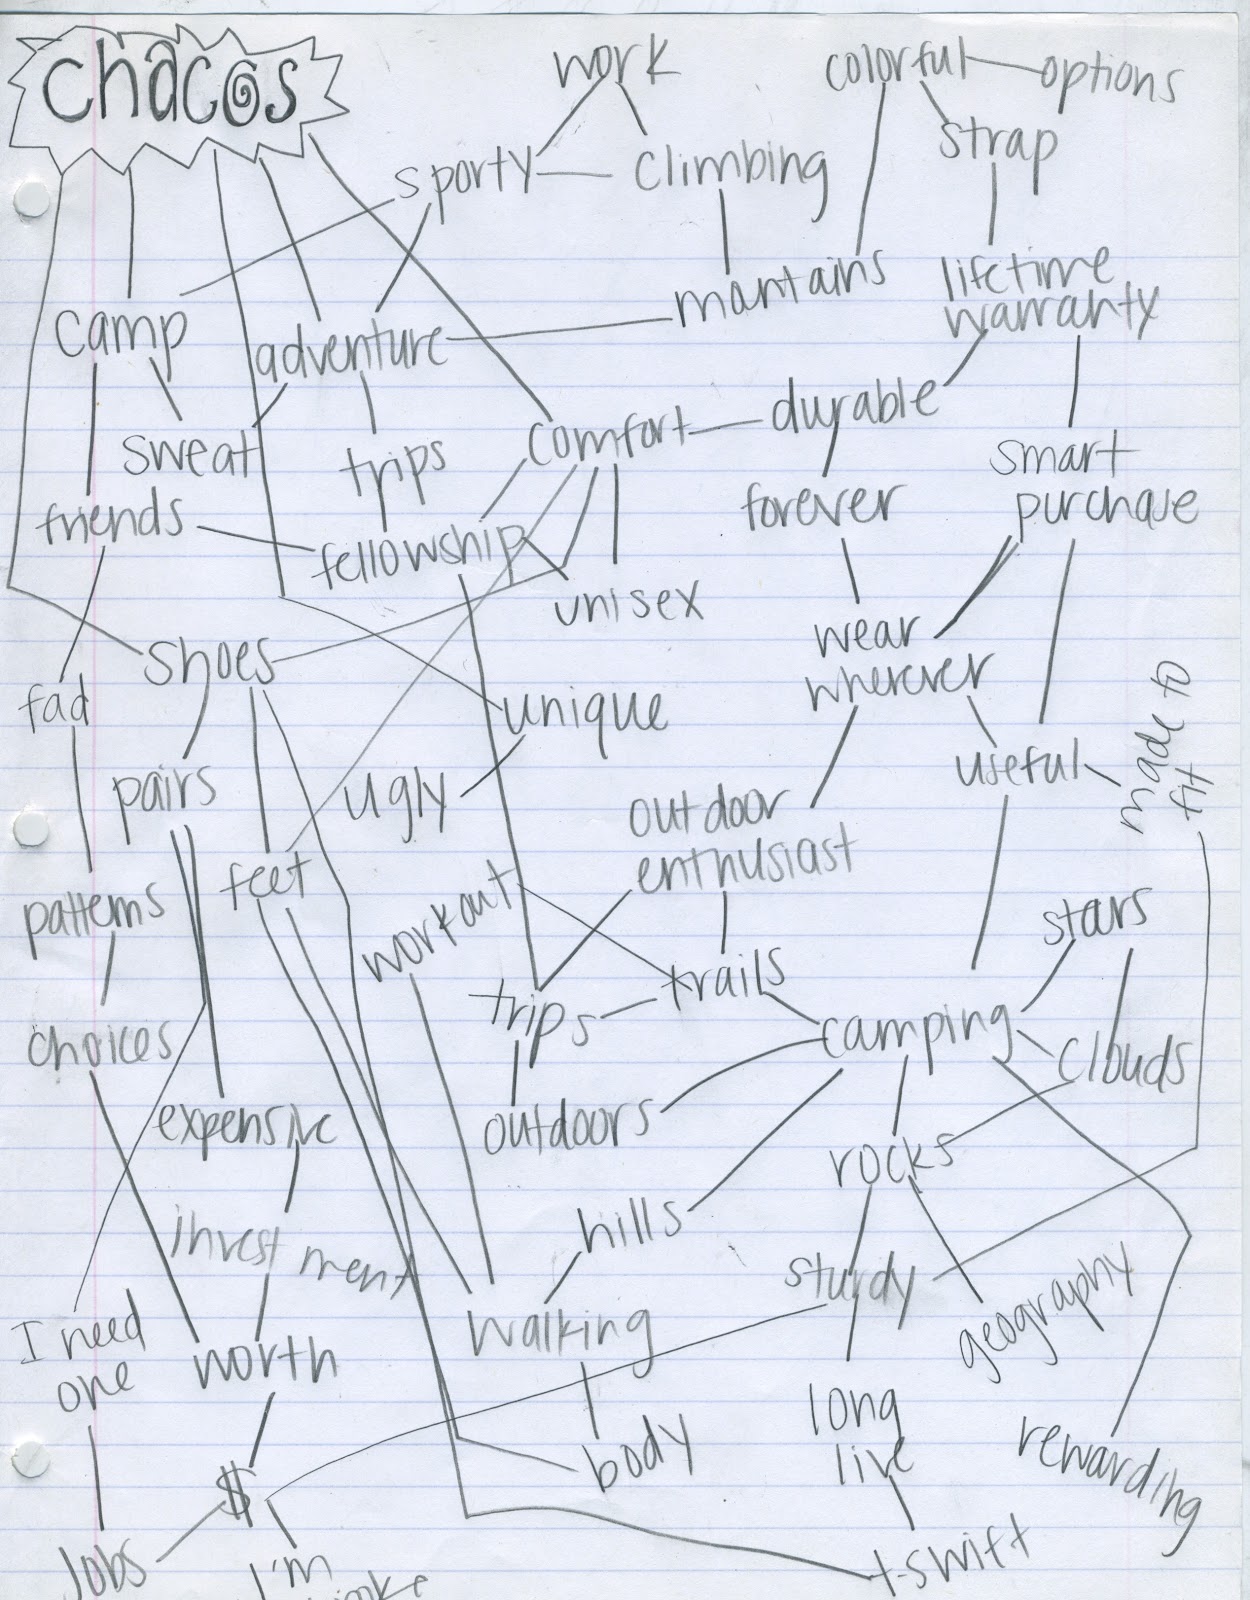 chacos
work
colorful
options
sporty
climbing
strap
mantains
lifetime
warranty
camp
adventure
sweat
trips
comfort
durable
smart
purchase
friends
fellowship
forever
unisex
wear
wherever
shoes
fad
unique
useful
made to
fit
pairs
ugly
outdoor
enthusiast
feet
workout
patterns
stars
trips
trails
camping
choices
clouds
expensive
outdoors
rocks
investment
hills
sturdy
geography
I need
one
worth
walking
long
live
body
rewarding
$
Jobs
I'm
t-swift